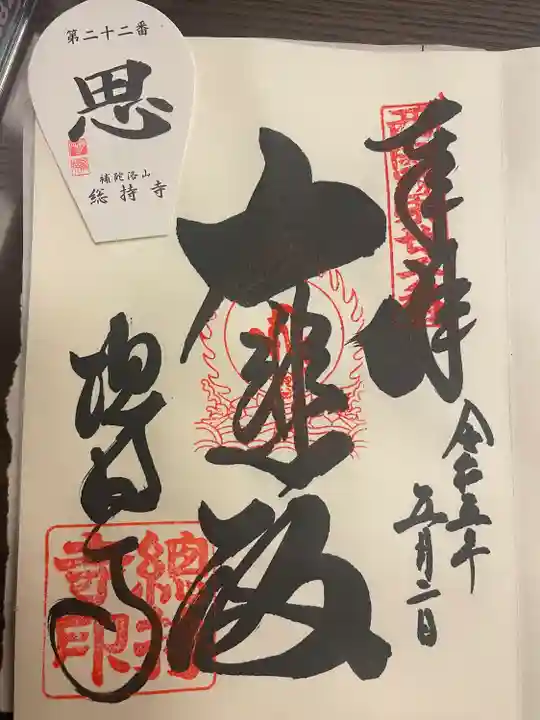 第二十二番
思
補陀洛山
総持寺
奉拝
令和五年
五月二日
大悲殿
總持寺
總持寺印